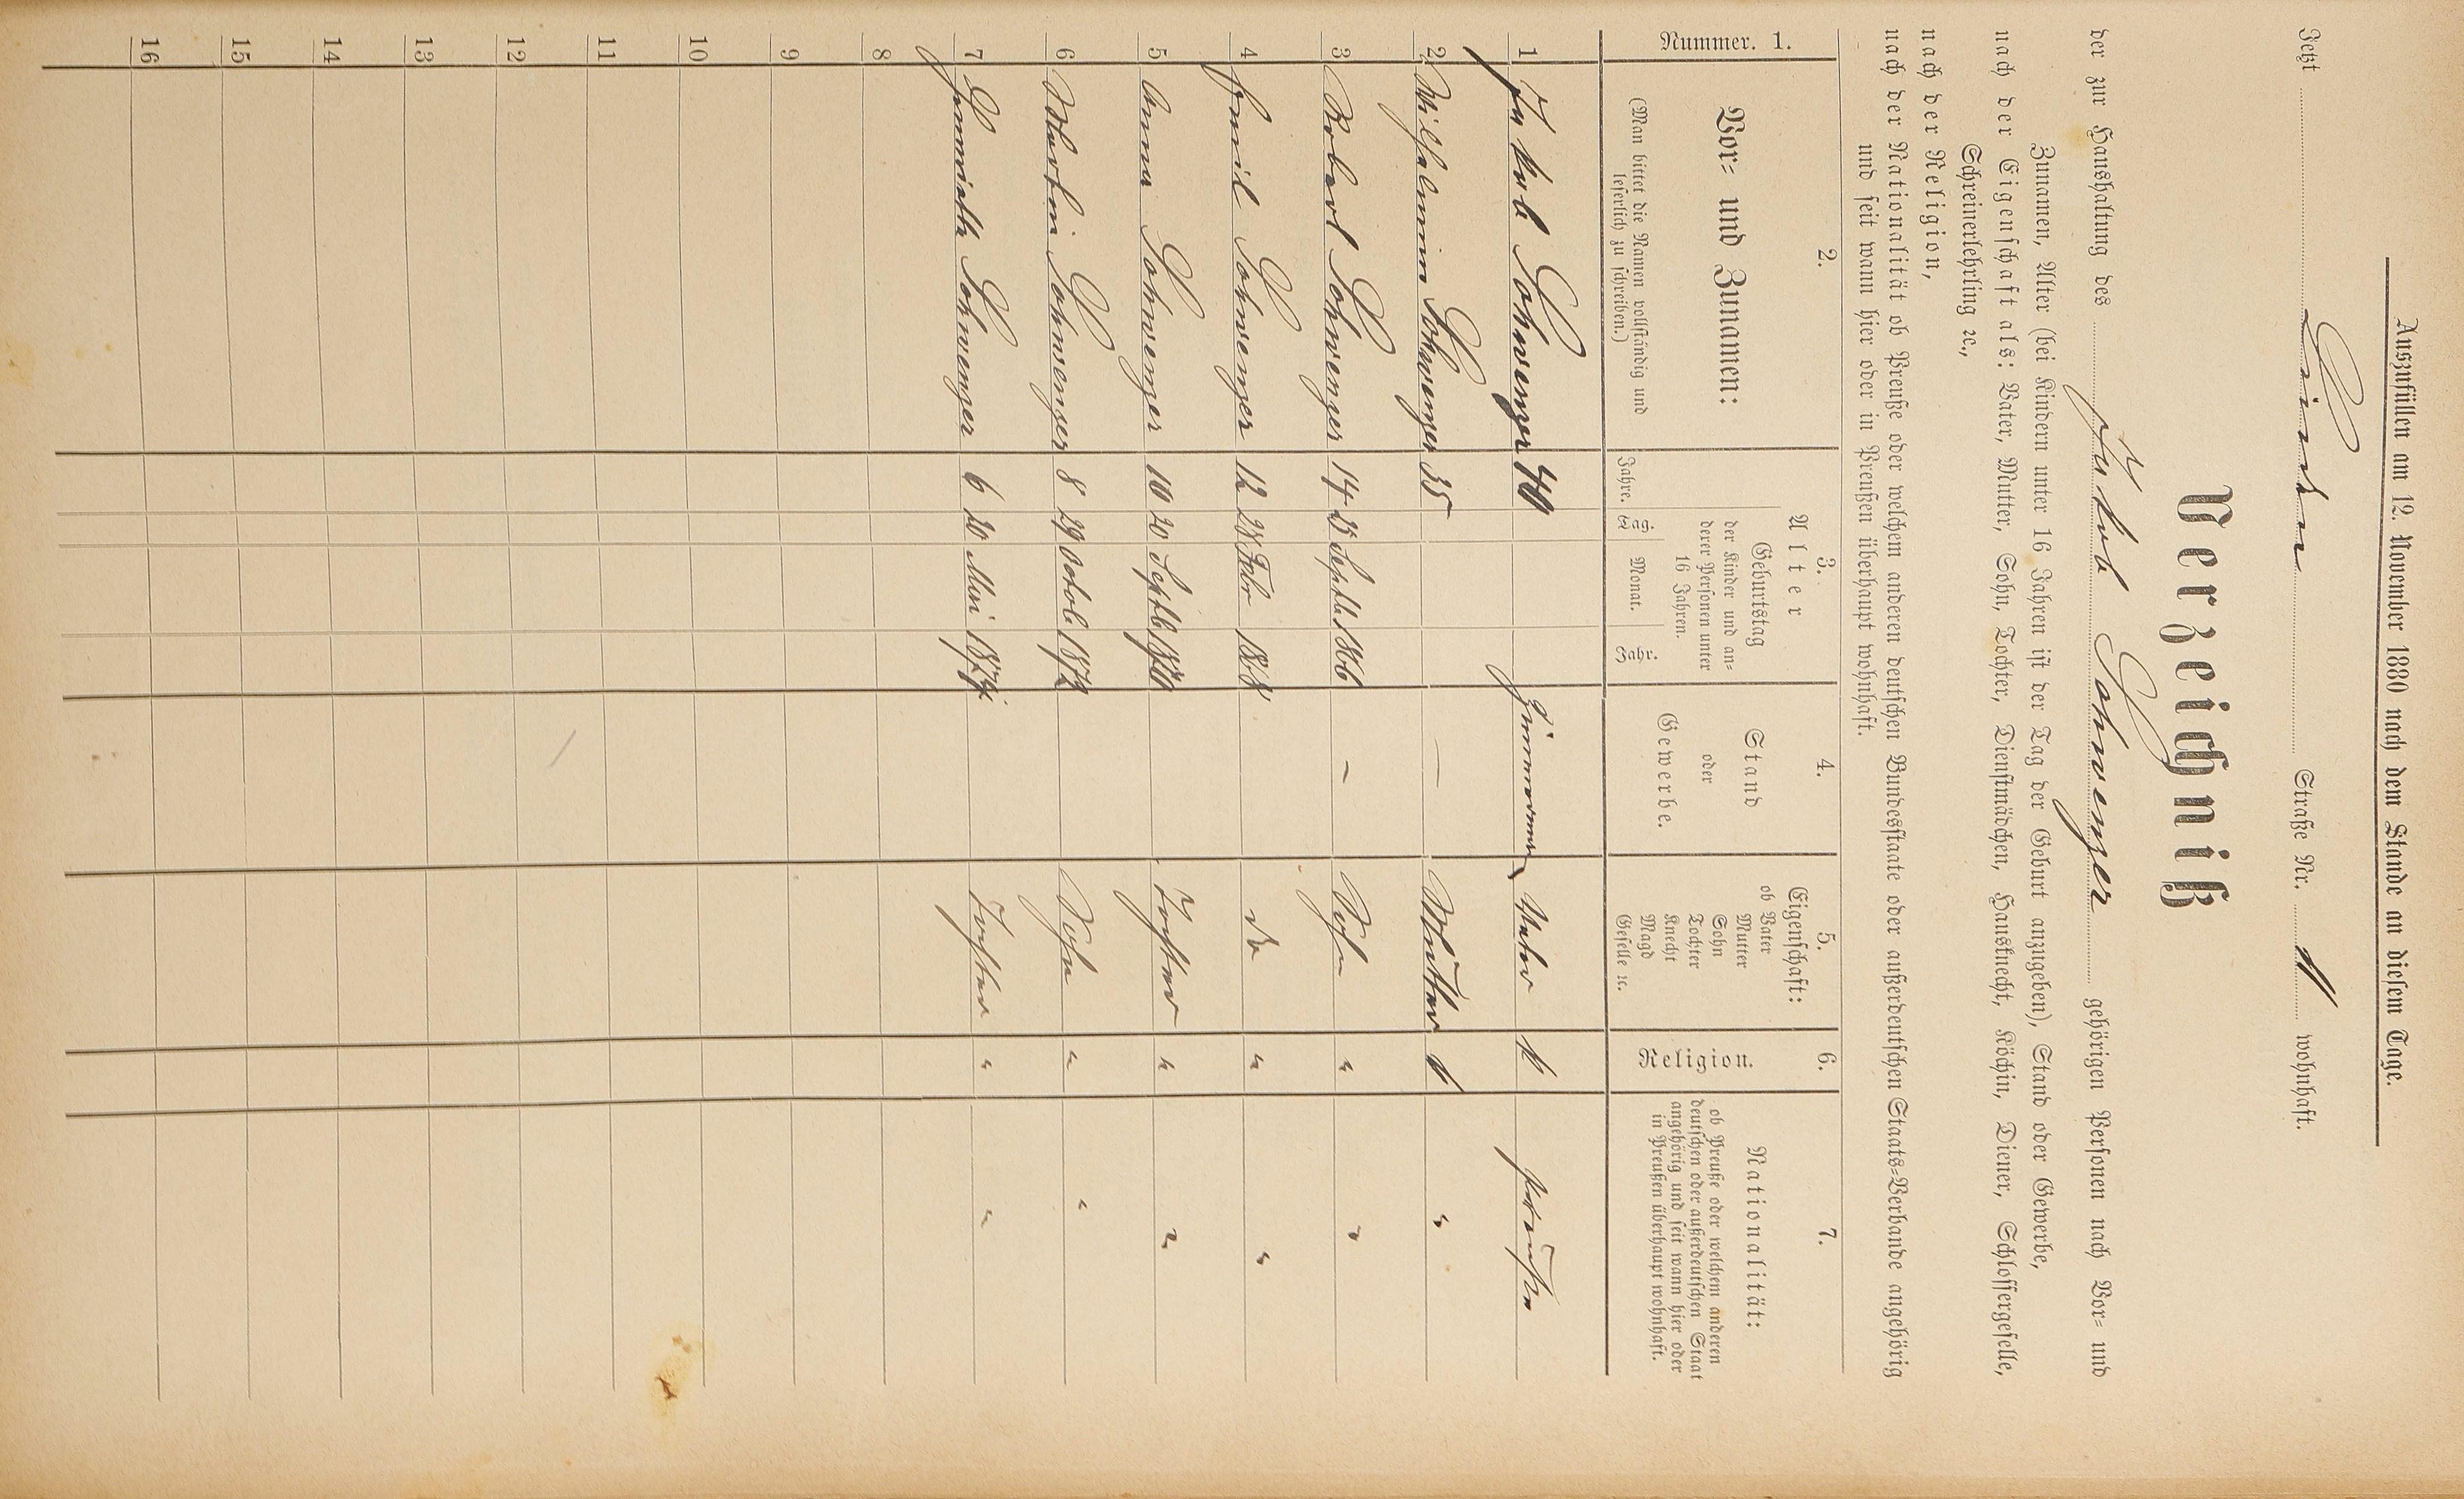 Auszufüllen am 12. November 1880 nach dem Stande an diesem Tage.
Jetzt Linden Straße Nr. 1 wohnhaft.
Verzeichniß
der zur Haushaltung des Jakob Schwenger gehörigen Personen nach Vor- und
Zunamen, Alter (bei Kindern unter 16 Jahren ist der Tag der Geburt anzugeben), Stand oder Gewerbe,
nach der Eigenschaft als: Vater, Mutter, Sohn, Tochter, Dienstmädchen, Hausknecht, Köchin, Diener, Schlossergeselle,
Schreinerlehrling ꝛc.,
nach der Religion,
nach der Nationalität ob Preuße oder welchem anderen deutschen Bundesstaate oder außerdeutschen Staats-Verbande angehörig
und seit wann hier oder in Preußen überhaupt wohnhaft.
Nummer. 1.
2.
Vor- und Zunamen:
(Man bittet die Namen vollständig und
leserlich zu schreiben.)
3.
Alter
Jahre.
Geburtstag
der Kinder und an-
derer Personen unter
16 Jahren.
Tag. Monat. Jahr.
4.
Stand
oder
Gewerbe.
5.
Eigenschaft:
ob Vater
Mutter
Sohn
Tochter
Knecht
Magd
Geselle ꝛc.
6.
Religion.
7.
Nationalität:
ob Preuße oder welchem anderen
deutschen oder außerdeutschen Staat
angehörig und seit wann hier oder
in Preußen überhaupt wohnhaft.
1 Jakob Schwenger 40 Zimmermann Vater k Preuße
2 Wilhelmin Schwenger 35 – Mutter "
3 Robert Schwenger 14 25 Septb 1866 – Sohn " "
4 Emil Schwenger 12 28 Febr 1868 do " "
5 Anna Schwenger 10 20 Septb 1870 Tochter " "
6 Martin Schwenger 8 29 Octob 1872 Sohn " "
7 Henriette Schwenger 6 20 Mai 1874 Tochter " "
8
9
10
11
12
13
14
15
16